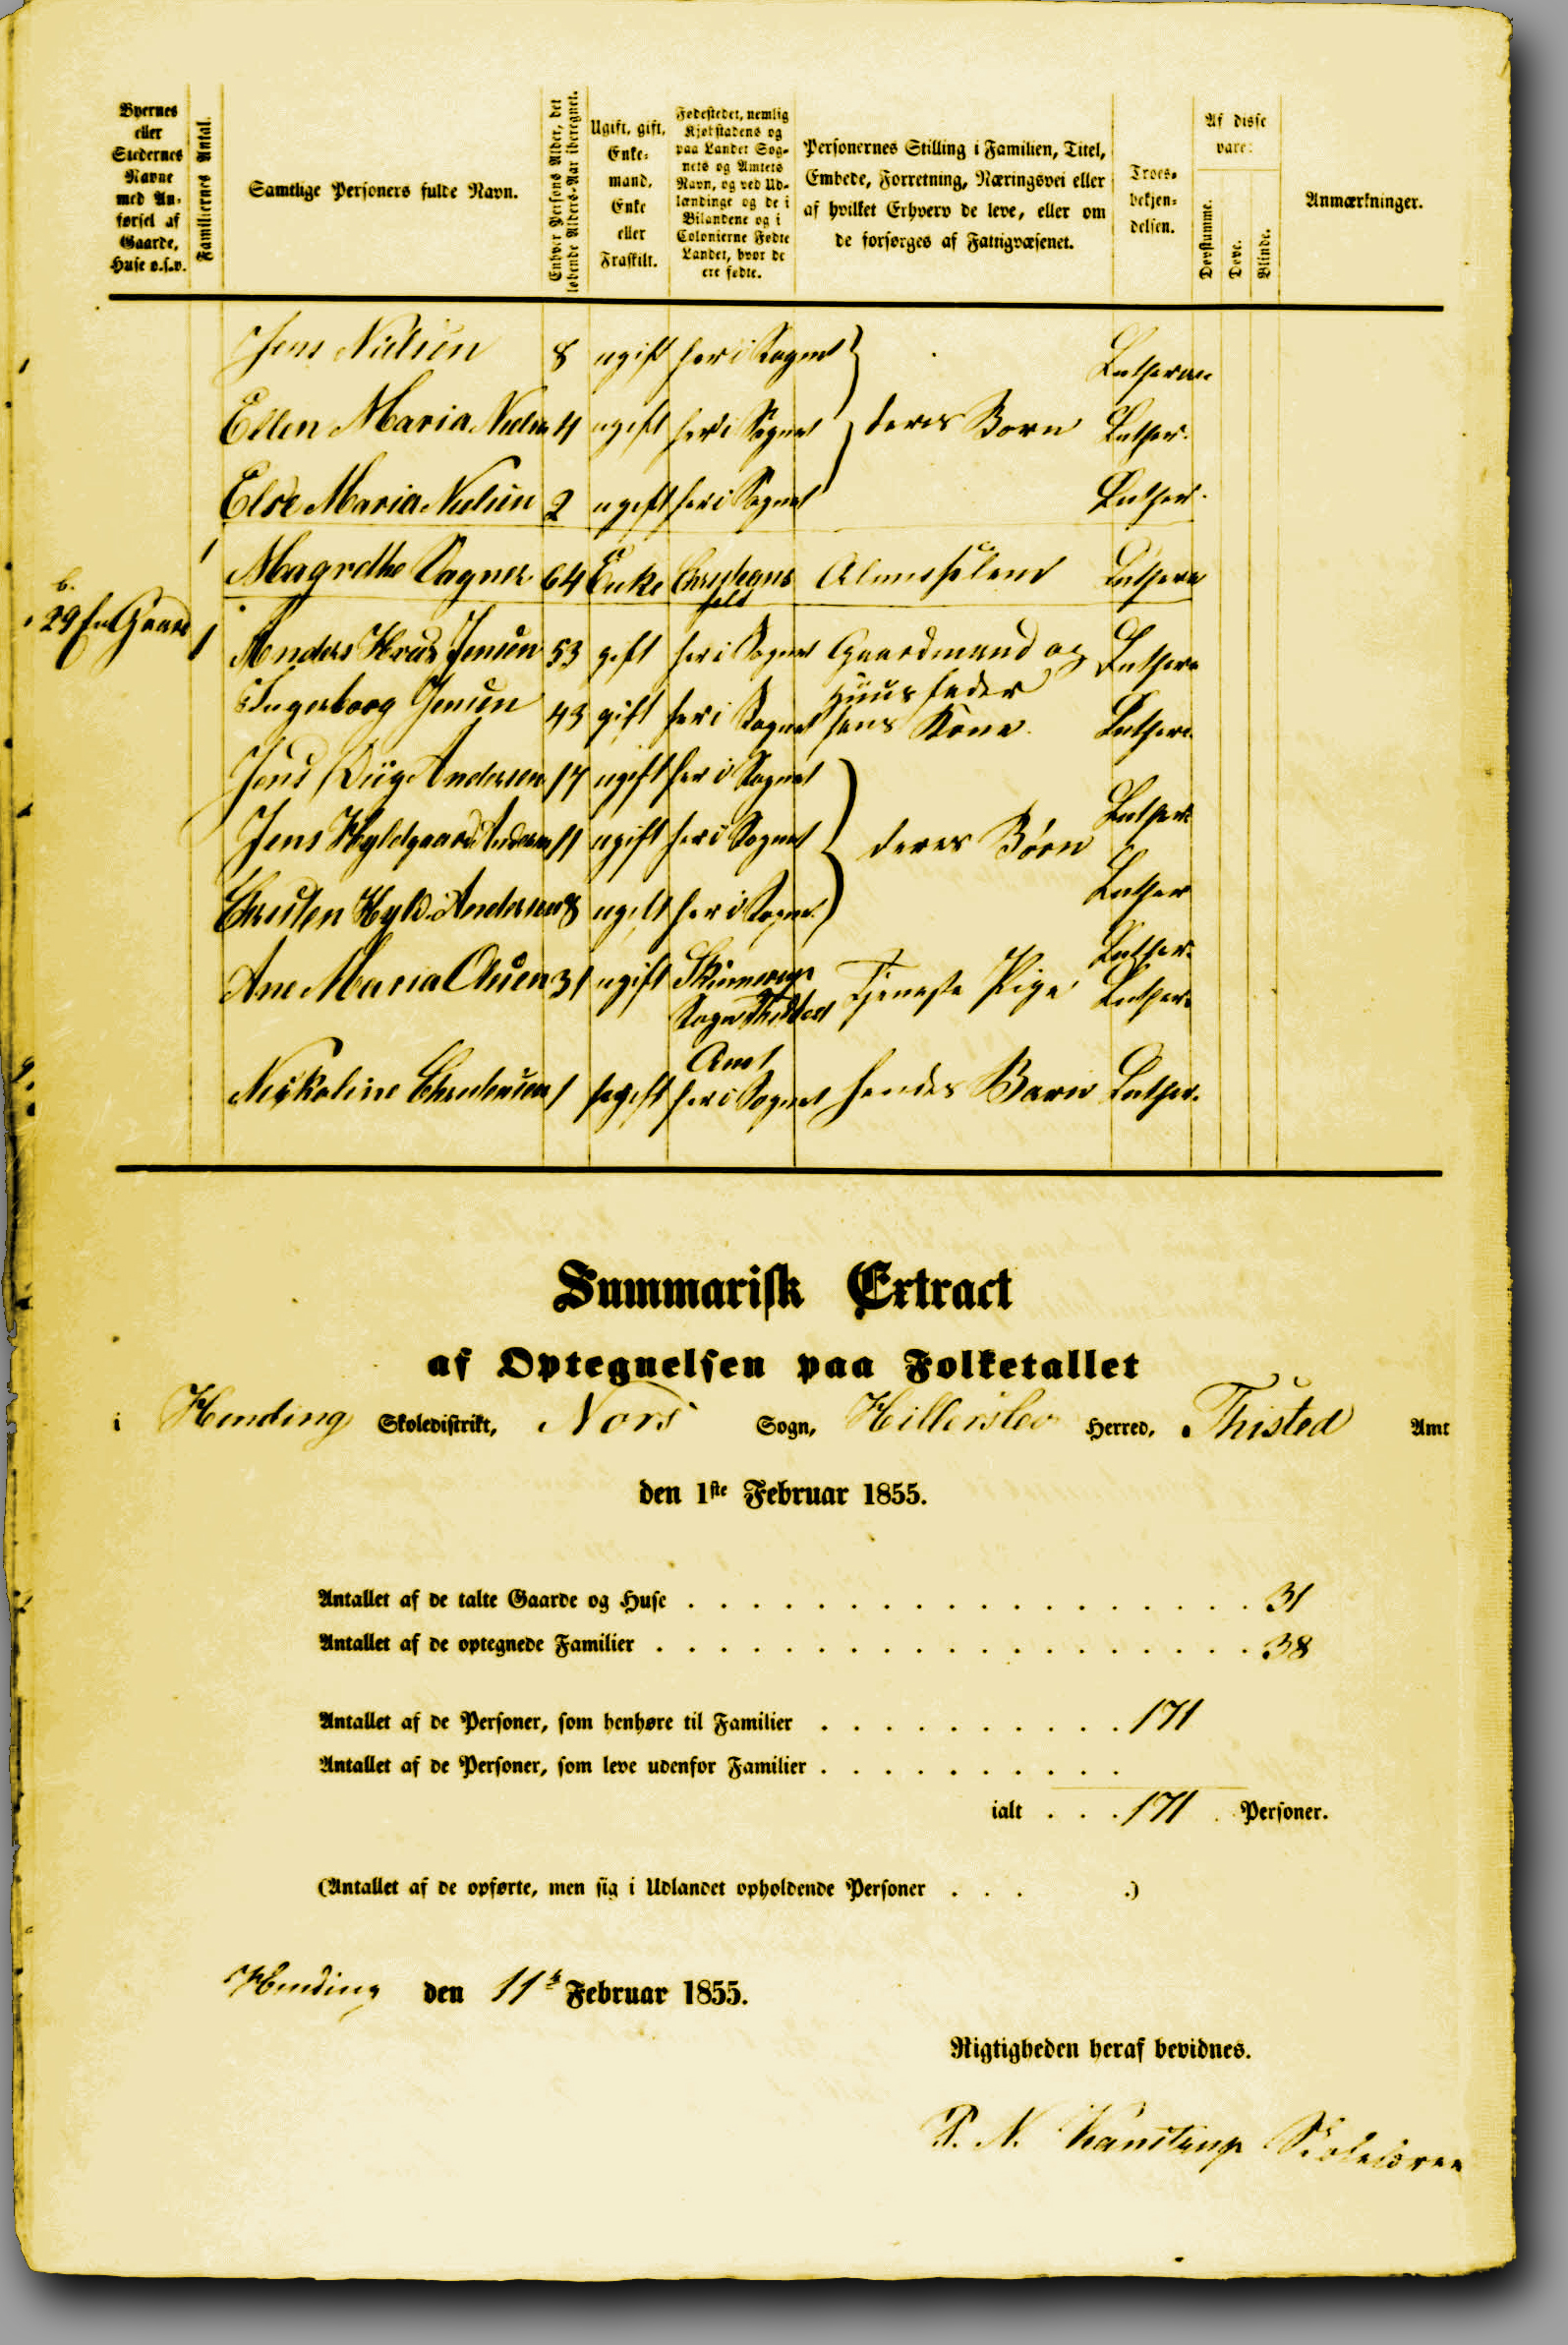 Byernes
eller
Stedernes
Navne
med An-
førsel af
Gaarde,
Huse o.s.v.
Familiernes Antal.
Samtlige Personers fulde Navn.
Enhver Persons Alder, det
løbende Alders-Aar iberegnet.
Ugift, gift,
Enke-
mand,
Enke
eller
Fraskilt.
Fødestedet, nemlig
Kjøbstadens og
paa Landet Sog-
nets og Amtets
Navn, og ved Ud-
lændinge og de i
Bilandene og i
Colonierne Fødte
Landet, hvor de
ere fødte.
Personernes Stilling i Familien, Titel,
Embede, Forretning, Næringsvei eller
af hvilket Erhverv de leve, eller om
de forsørges af Fattigvæsenet.
Troes-
bekjen-
delsen.
Af disse
vare:
Døvstumme.
Døve.
Blinde.
Anmærkninger.
Jens Nielsen 8 ugift her i Sognet Lutheran
Ellen Maria Nielsen 4 ugift her i Sognet deres Børn Luther.
Else Maria Nielsen 2 ugift her i Sognet Luther.
1 Magrethe 64 Enke Christians Almisselem Luthera
feld
b.
29 En Gaard 1 Anders Jensen 53 gift her i Sognet Gaardmand og Luthera
Huusfader
Ingerborg Jensen 43 gift her i Sognet hans Kone. Luther.
Jens Andersen 17 ugift her i Sognet Luther.
Jens Hyldgaard Andersen 11 ugift her i Sognet deres Børn Luther
Christen Hyld. Andersen 8 ugift her i Sognet Luther.
Ane Maria Olsen 31 ugift Skinnerup Tjeneste Pige Luther.
Sogn Thisted
Amt
Nikoline Christensen 1 ugift her i Sognet hendes Barn Luther.
Summarisk Extract
af Optegnelsen paa Folketallet
i Hinding Skoledistrikt, Nors Sogn, Hillerslev Herred, Thisted Amt
den 1ste Februar 1855.
Antallet af de talte Gaarde og Huse . . . 31
Antallet af de optegnede Familier . . . 38
Antallet af de Personer, som henhøre til Familier . . . 171
Antallet af de Personer, som leve udenfor Familier . . .
ialt . . . 171 . Personer.
(Antallet af de opførte, men sig i Udlandet opholdende Personer . . . .)
Hinding den 11te Februar 1855.
Rigtigheden heraf bevidnes.
P. N.